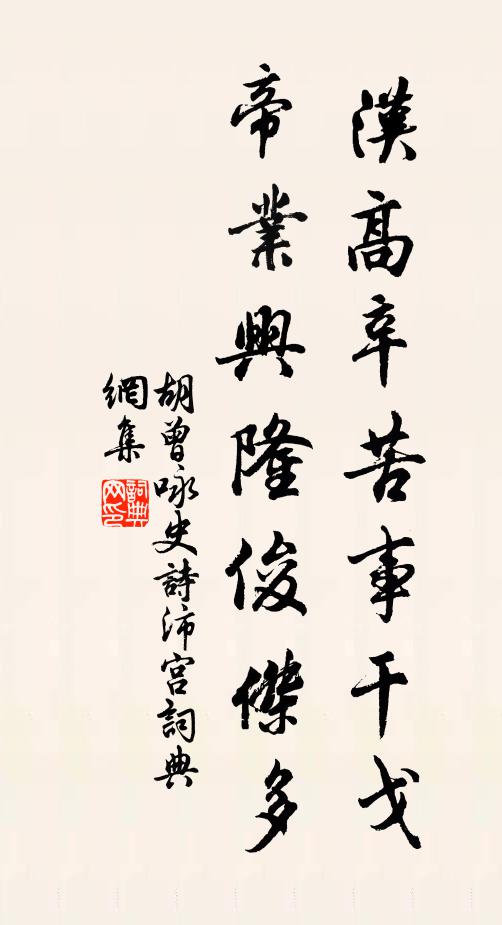 漢高辛苦事干戈
帝業興隆俊傑多
胡曾咏史詩沛宮詞典
網集
詞典網印